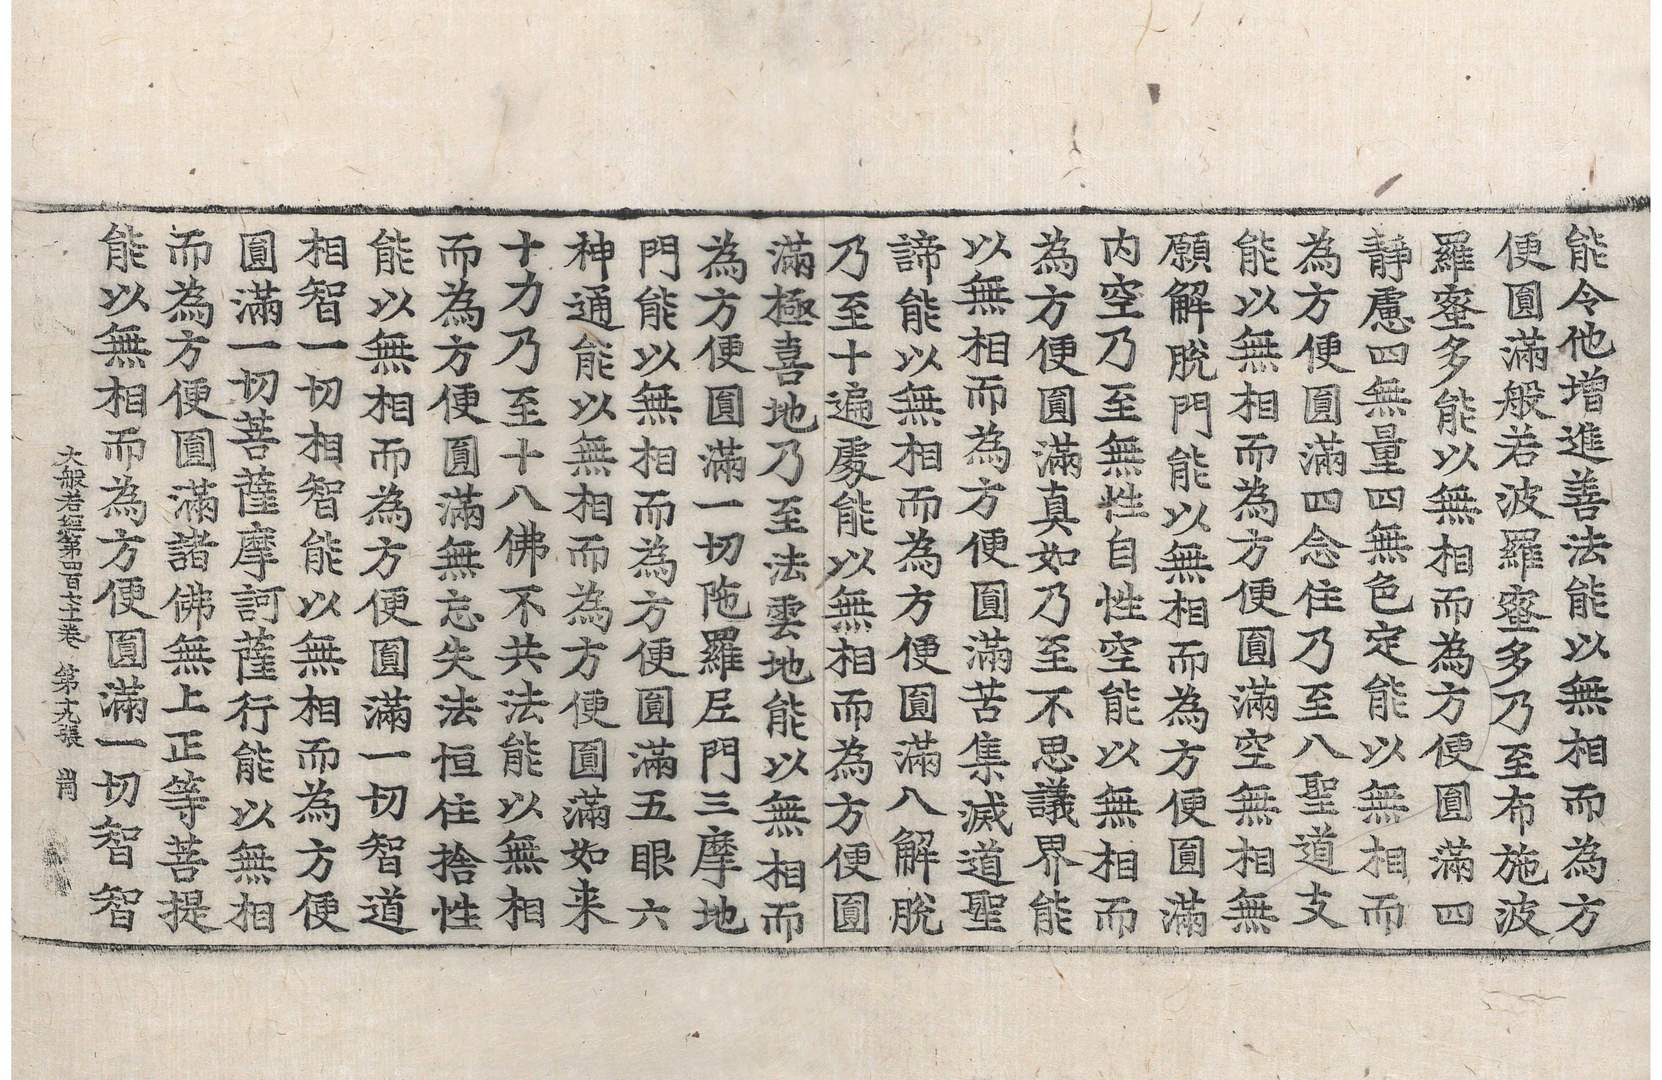 能令他增進善法能以無相而為方
便圓滿般若波羅蜜多乃至布施波
羅蜜多能以無相而為方便圓滿四
靜慮四無量四無色定能以無相而
為方便圓滿四念住乃至八聖道支
能以無相而為方便圓滿空無相無
願解脫門能以無相而為方便圓滿
內空乃至無性自性空能以無相而
為方便圓滿真如乃至不思議界能
以無相而為方便圓滿苦集滅道聖
諦能以無相而為方便圓滿八解脫
乃至十遍處能以無相而為方便圓
滿極喜地乃至法雲地能以無相而
為方便圓滿一切陁羅尼門三摩地
門能以無相而為方便圓滿五眼六
神通能以無相而為方便圓滿如来
十力乃至十八佛不共法能以無相
而為方便圓滿無忘失法恒住捨性
能以無相而為方便圓滿一切智道
相智一切相智能以無相而為方便
圓滿一切菩薩摩訶薩行能以無相
而為方便圓滿諸佛無上正等菩提
能以無相而為方便圓滿一切智智
大般若經第四百七十二卷 第十九張